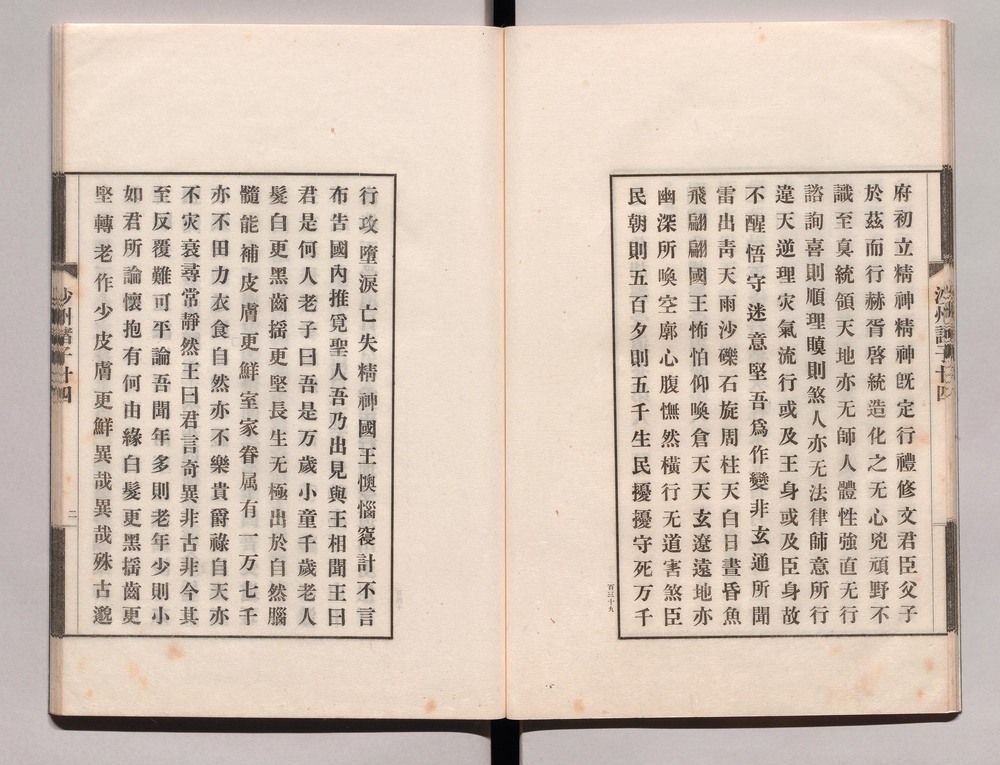 府初立精神精神旣定行禮修文君臣父子
於茲而行赫胥啓統造化之无心兇頑野不
識至真統領天地亦无師人體性強直无行
諮詢喜則順理瞋則煞人亦无法律師意所行
違天逆理灾氣流行或及王身或及臣身故
不醒悟守迷意堅吾爲作變非玄通所聞
雷出靑天雨沙礫石旋周柱天白日晝昏魚
飛翩翩國王怖怕仰喚倉天天玄遼遠地亦
幽深所喚空廓心腹憮然橫行无道害煞臣
民朝則五百夕則五千生民擾擾守死万千
百三十九
行攻墮淚亡失精神國王懊惱寑計不言
布告國內推覓聖人吾乃出見與王相聞王曰
君是何人老子曰吾是万歲小童千歲老人
髮白更黑齒揺更堅長生无極出於自然腦
髓能補皮膚更鮮室家眷属有一万七千
亦不田力衣食自然亦不樂貴爵祿自天亦
不灾衰尋常靜然王曰君言奇異非古非今其
至反覆難可平論吾聞年多則老年少則小
如君所論懷抱有何由緣白髮更黑揺齒更
堅轉老作少皮膚更鮮異哉異哉殊古邈
沙州諸子廿四
二